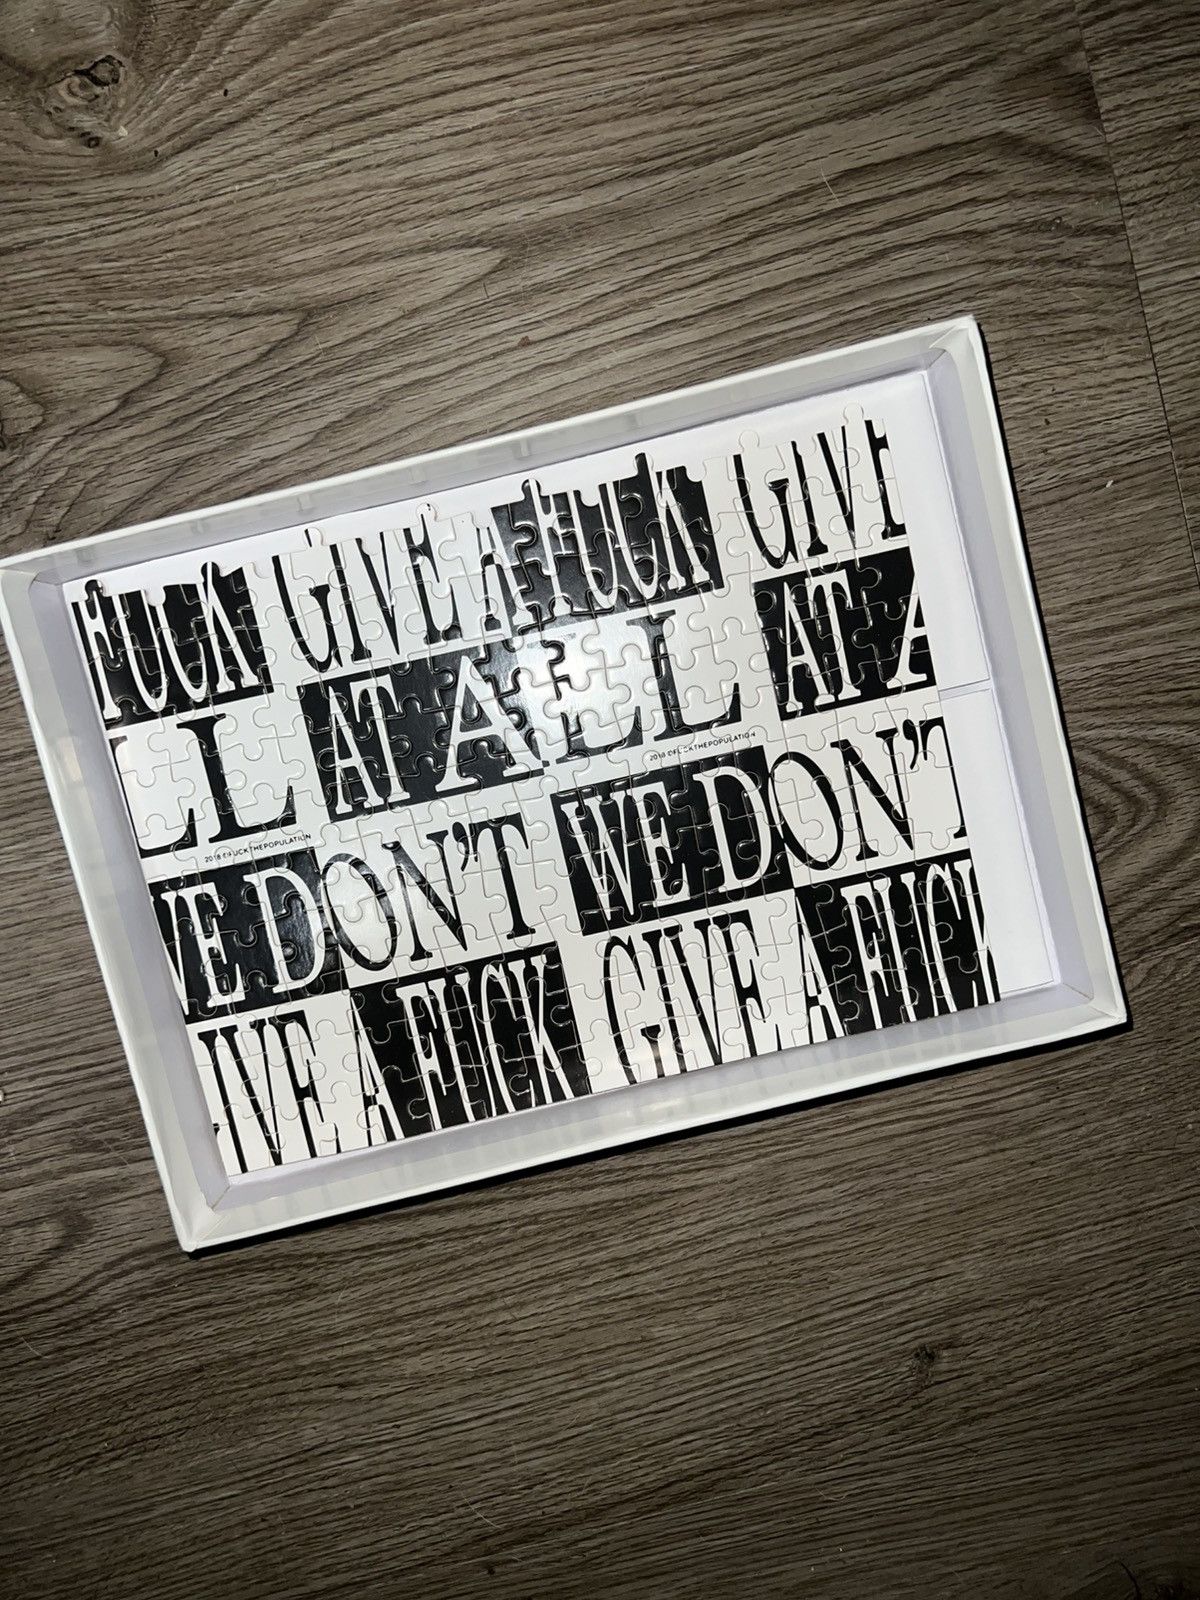 FUCK GIVE A FUCK GIVE
LL AT ALL AT A
2018 ©FUCKTHEPOPULATION 2018 ©FUCKTHEPOPULATION
WE DON'T WE DON'T
GIVE A FUCK GIVE A FUCK